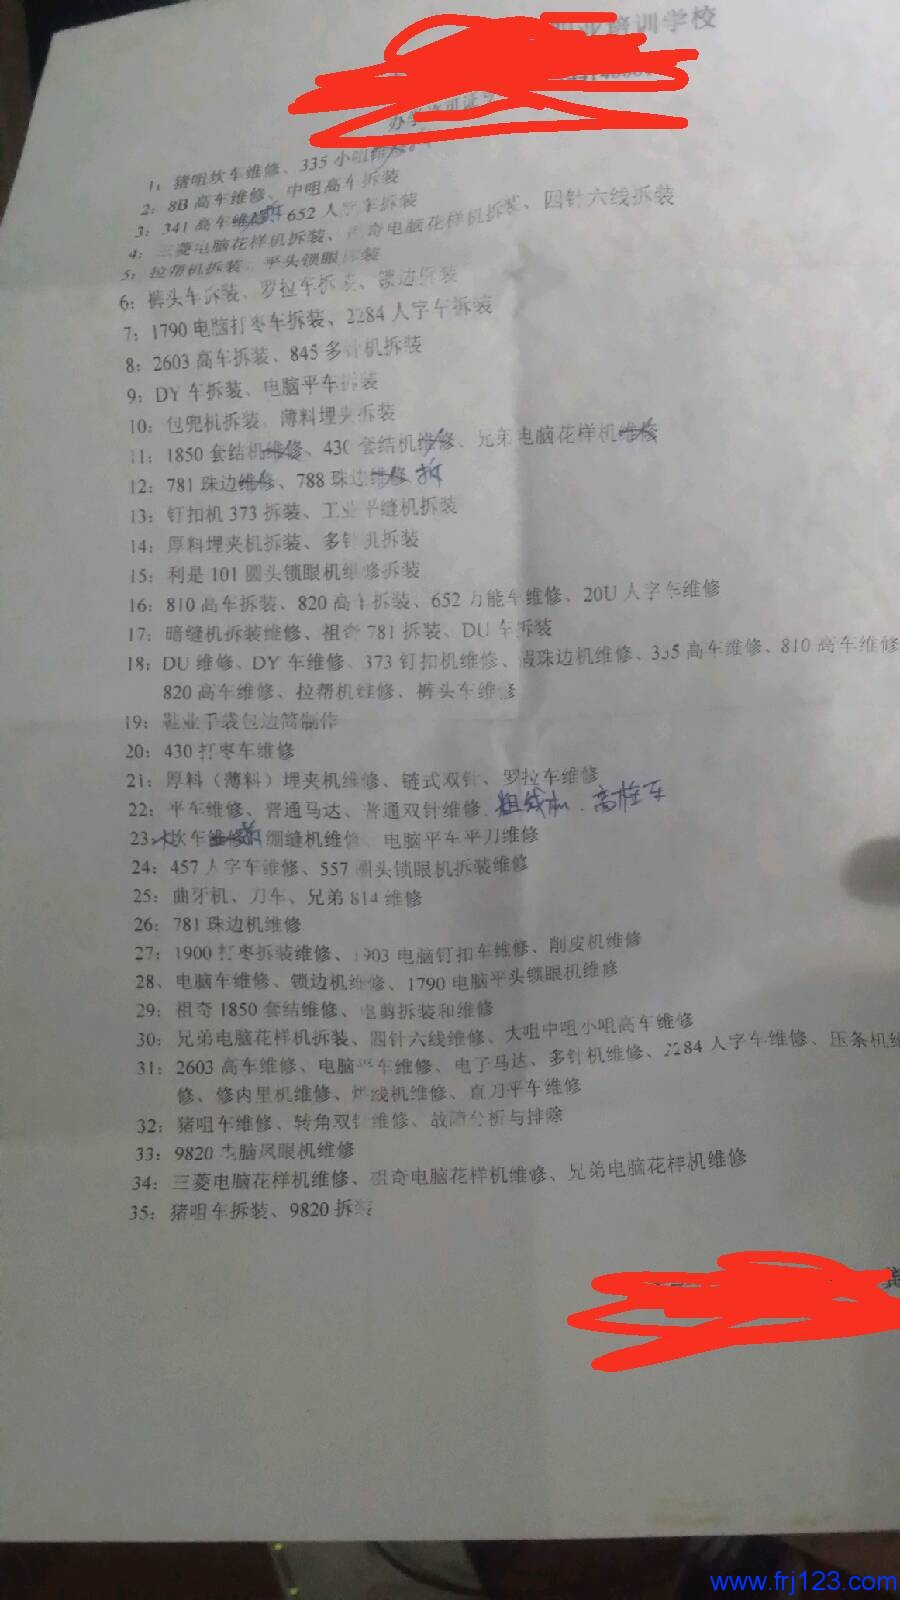 职业培训学校
办学许可证号
1：猪咀坎车维修、335 小咀
2：8B 高车维修、中咀高车拆装
3：341 高车维修拆 652 人字车拆装
4：三菱电脑花样机拆装、祖奇电脑花样机拆装、四针六线拆装
5：拉帮机拆装、平头锁眼拆装
6：裤头车拆装、罗拉车拆装、边拆装
7：1790 电脑打枣车拆装、2284 人字车拆装
8：2603 高车拆装、845 多针机拆装
9：DY 车拆装、电脑平车拆装
10：包兜机拆装、薄料埋夹拆装
11：1850 套结机维修、430 套结机维修、兄弟电脑花样机维修
12：781 珠边维修、788 珠边维修 拆
13：钉扣机 373 拆装、工业平缝机拆装
14：厚料埋夹机拆装、多针机拆装
15：利是 101 圆头锁眼机维修拆装
16：810 高车拆装、820 高车拆装、652 万能车维修、20U 人字车维修
17：暗缝机拆装维修、祖奇 781 拆装、DU 车拆装
18：DU 维修、DY 车维修、373 钉扣机维修、珠边机维修、335 高车维修、810 高车维修
820 高车维修、拉帮机维修、裤头车维修
19：鞋业手袋包边筒制作
20：430 打枣车维修
21：厚料（薄料）埋夹机维修、链式双针、罗拉车维修
22：平车维修、普通马达、普通双针维修、粗线机、高柱车
23：坎车维修 绷缝机维修、电脑平车平刀维修
24：457 人字车维修、557 圆头锁眼机拆装维修
25：曲牙机、刀车、兄弟 814 维修
26：781 珠边机维修
27：1900 打枣拆装维修、1903 电脑钉扣车维修、削皮机维修
28、电脑车维修、锁边机维修、1790 电脑平头锁眼机维修
29：祖奇 1850 套结维修、电剪拆装和维修
30：兄弟电脑花样机拆装、四针六线维修、大咀中咀小咀高车维修
31：2603 高车维修、电脑平车维修、电子马达、多针机维修、2284 人字车维修、压条机维
修、修内里机维修、炉线机维修、直刀平车维修
32：猪咀车维修、转角双针维修、故障分析与排除
33：9820 电脑凤眼机维修
34：三菱电脑花样机维修、祖奇电脑花样机维修、兄弟电脑花样机维修
35：猪咀车拆装、9820 拆装
www.frj123.com